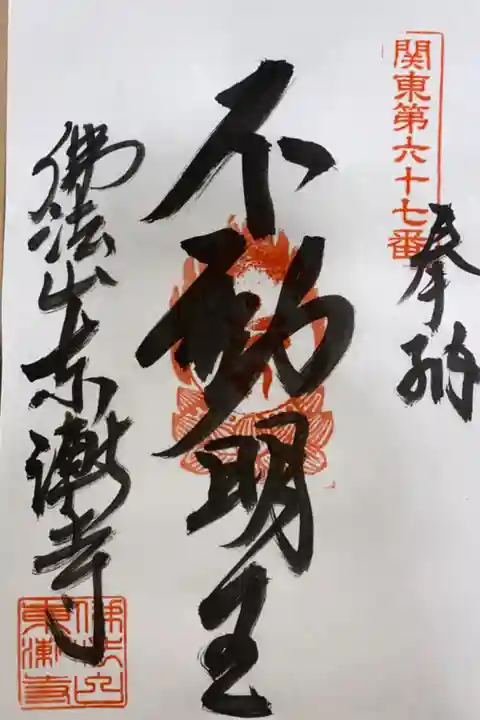 関東第六十七番
奉納
不動明王
佛法山東漸寺
佛法山
東漸寺